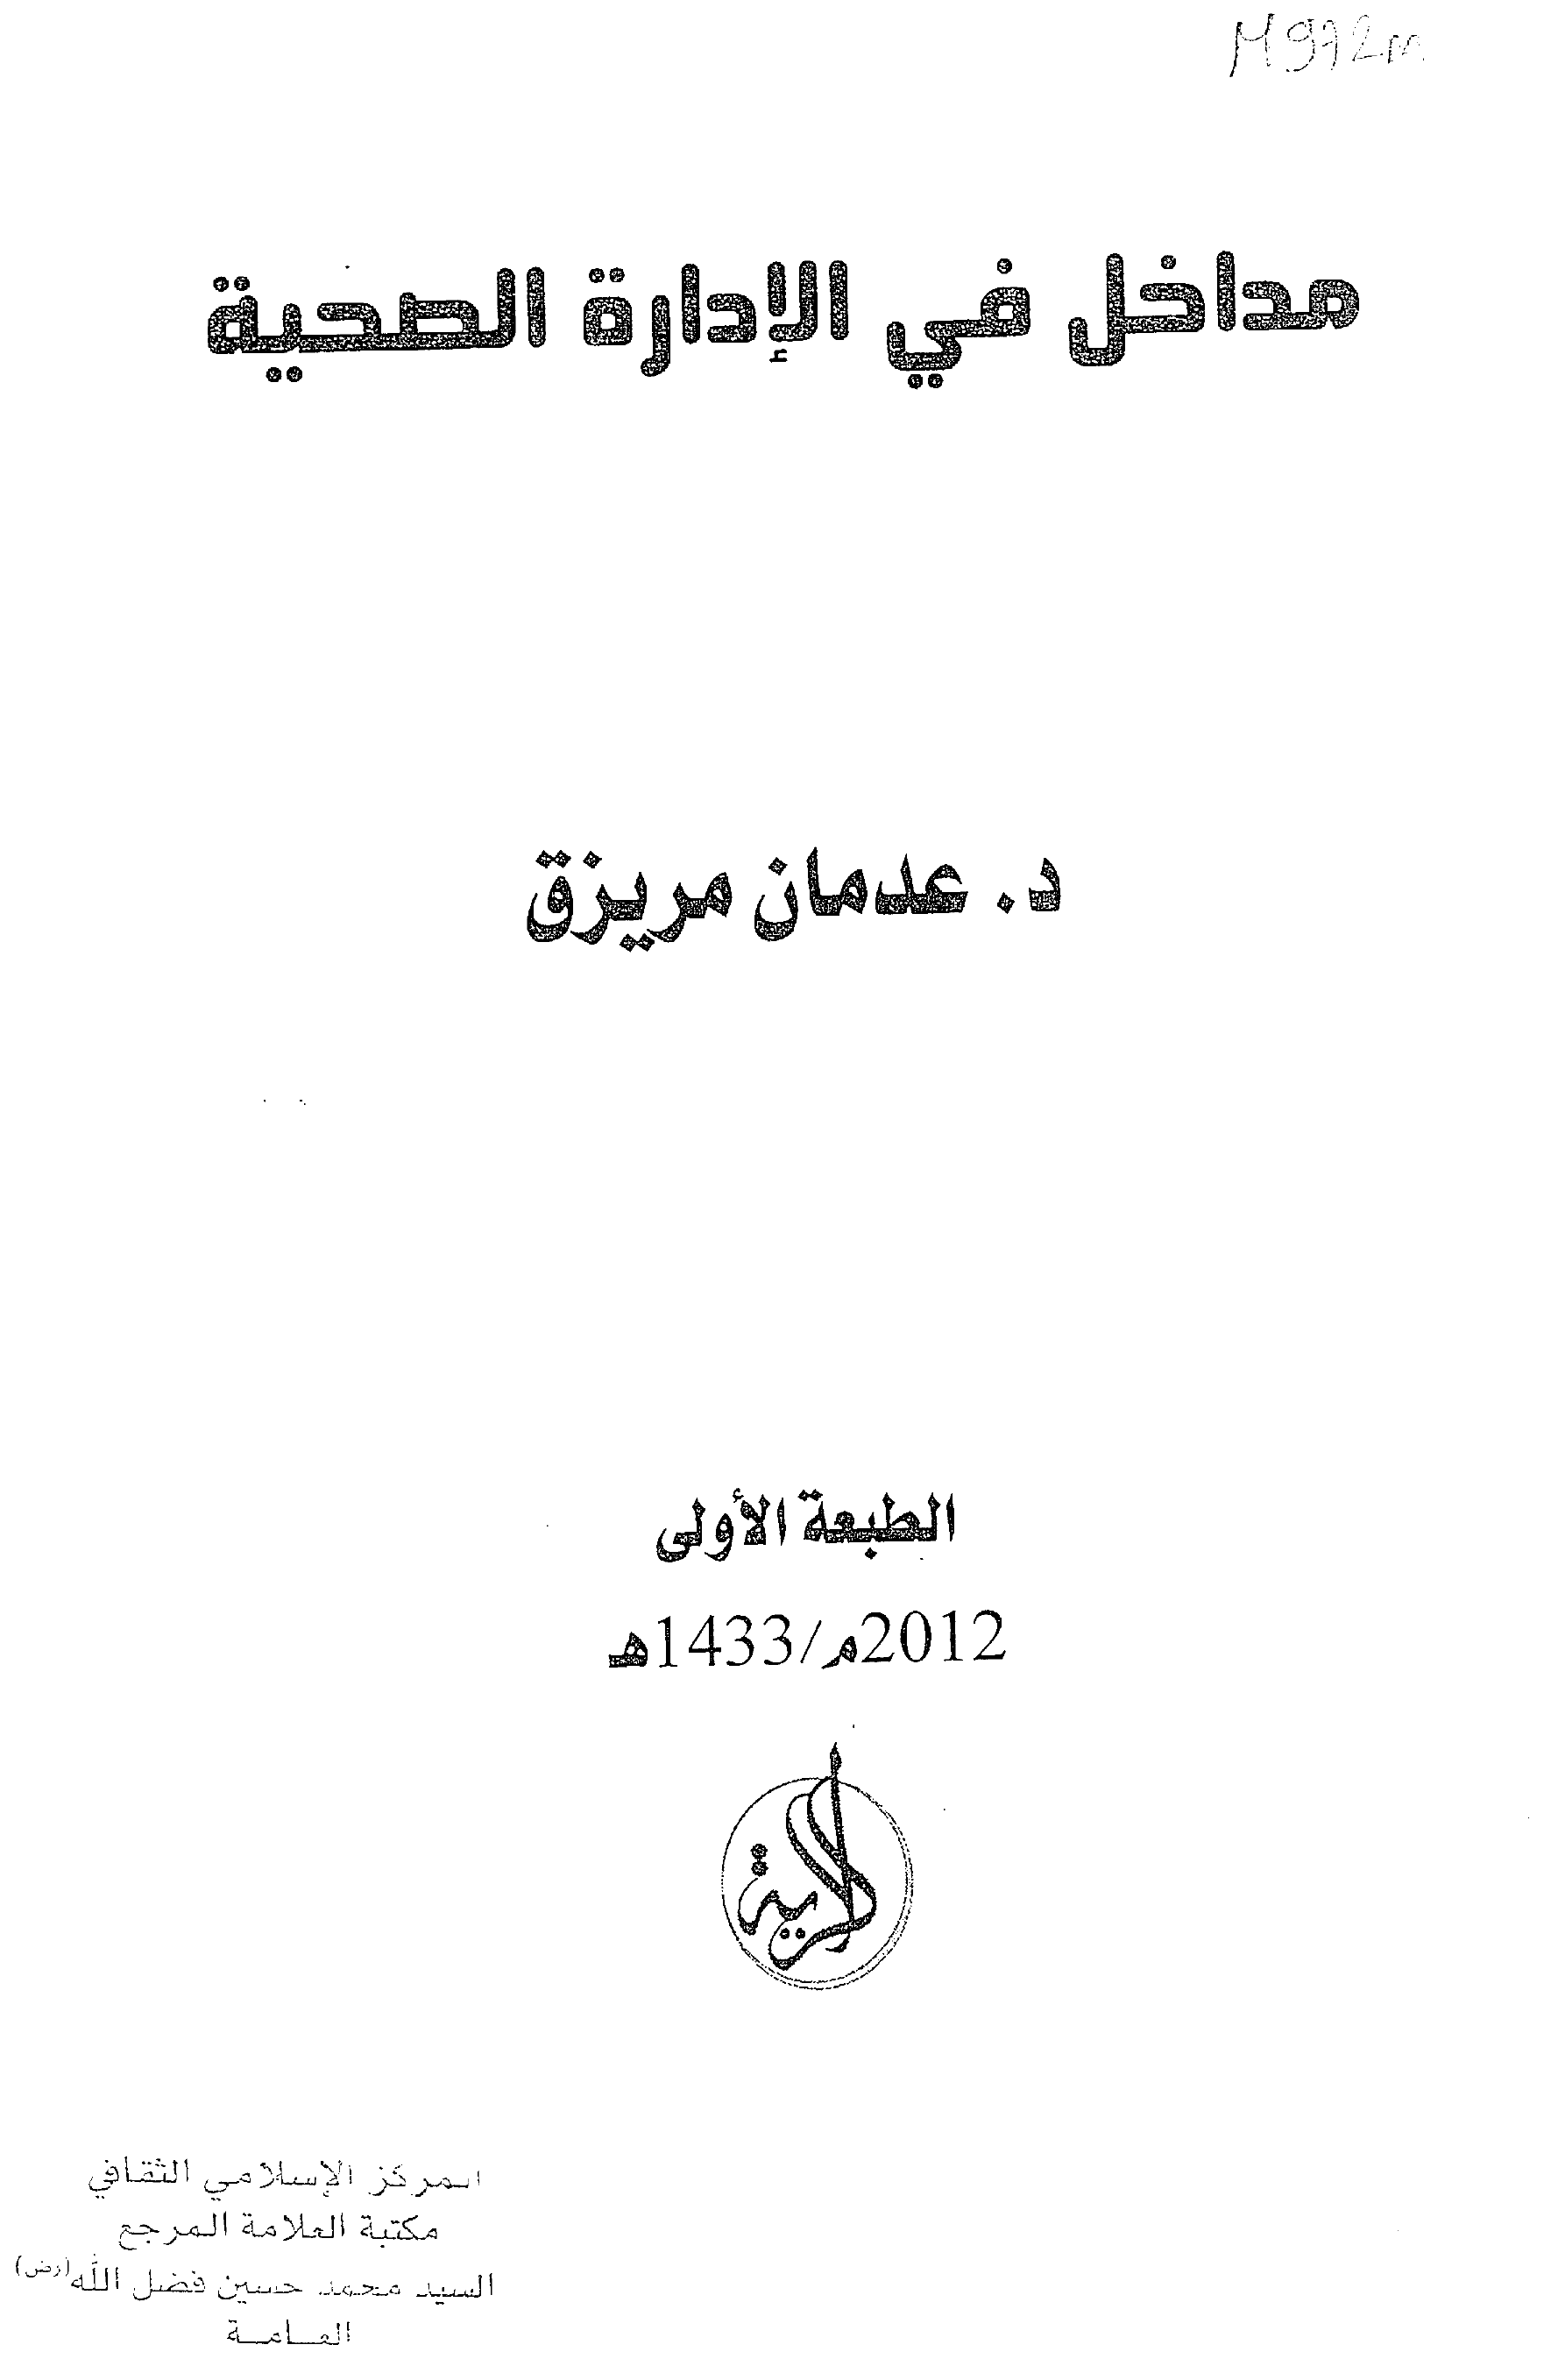 M972m
مداخل في الإدارة الصحية
د. عدمان مريزق
الطبعة الأولى
2012م/1433هـ
الراية
المركز الإسلامي الثقافي
مكتبة العلامة المرجع
السيد محمد حسين فضل الله (رض)
العامة